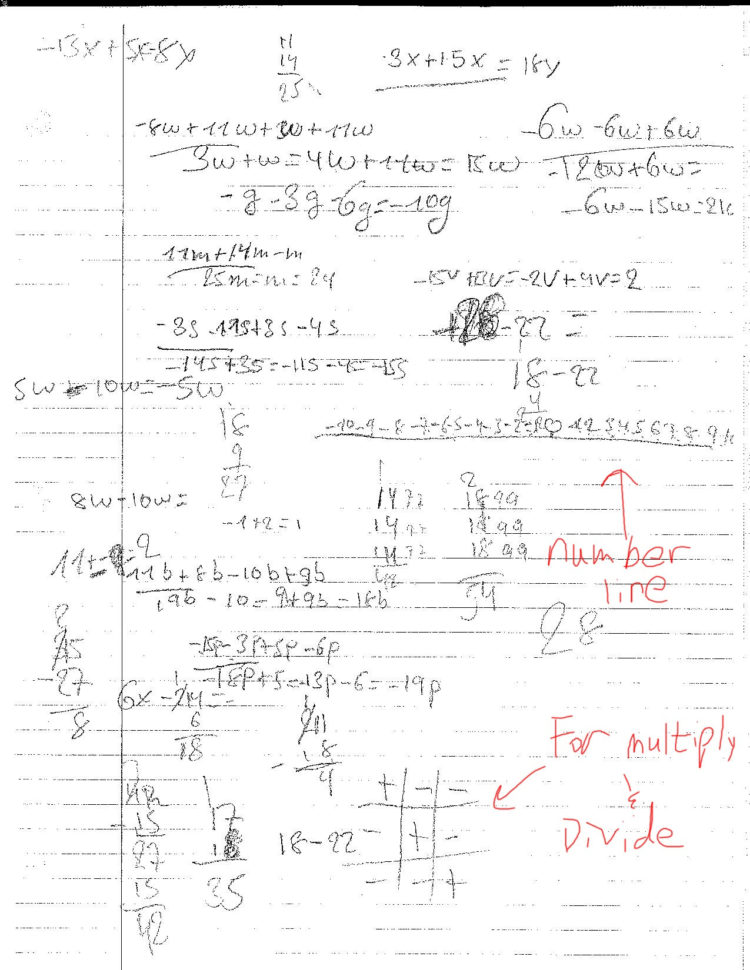 -13x+5x=-8x
11
14
25
3x+15x=18y
-8w+11w+w+11w
3w+w=4w+11w=15w
-6w-6w+6w
-12w+6w=
-6w-15w=21
-g-3g-6g=-10g
11m+14m-m
25m-m=24
-15v+13v=-2v+4v=2
-3s-11s+3s-4s
-14s+3s=-11s-4s=-15s
-22=
18-22
4
5w-10w=-5w
18
9
27
-10-9-8-7-6-5-4-3-2-1 0 1 2 3 4 5 6 7 8 9 10
8w-10w=
-1+2=1
14
14
14
2
18 99
18 99
18 99
54
number
line
11+-9=2
11b+8b-10b+9b
19b-10=9+9b=18b
28
-15p-3p+5p-6p
-18p+5=-13p-6=-19p
-27
8
6x-24=
6
18
18
4
For multiply
&
Divide
+ - -
- + -
- - +
15
27
15
42
17
18
35
18-22